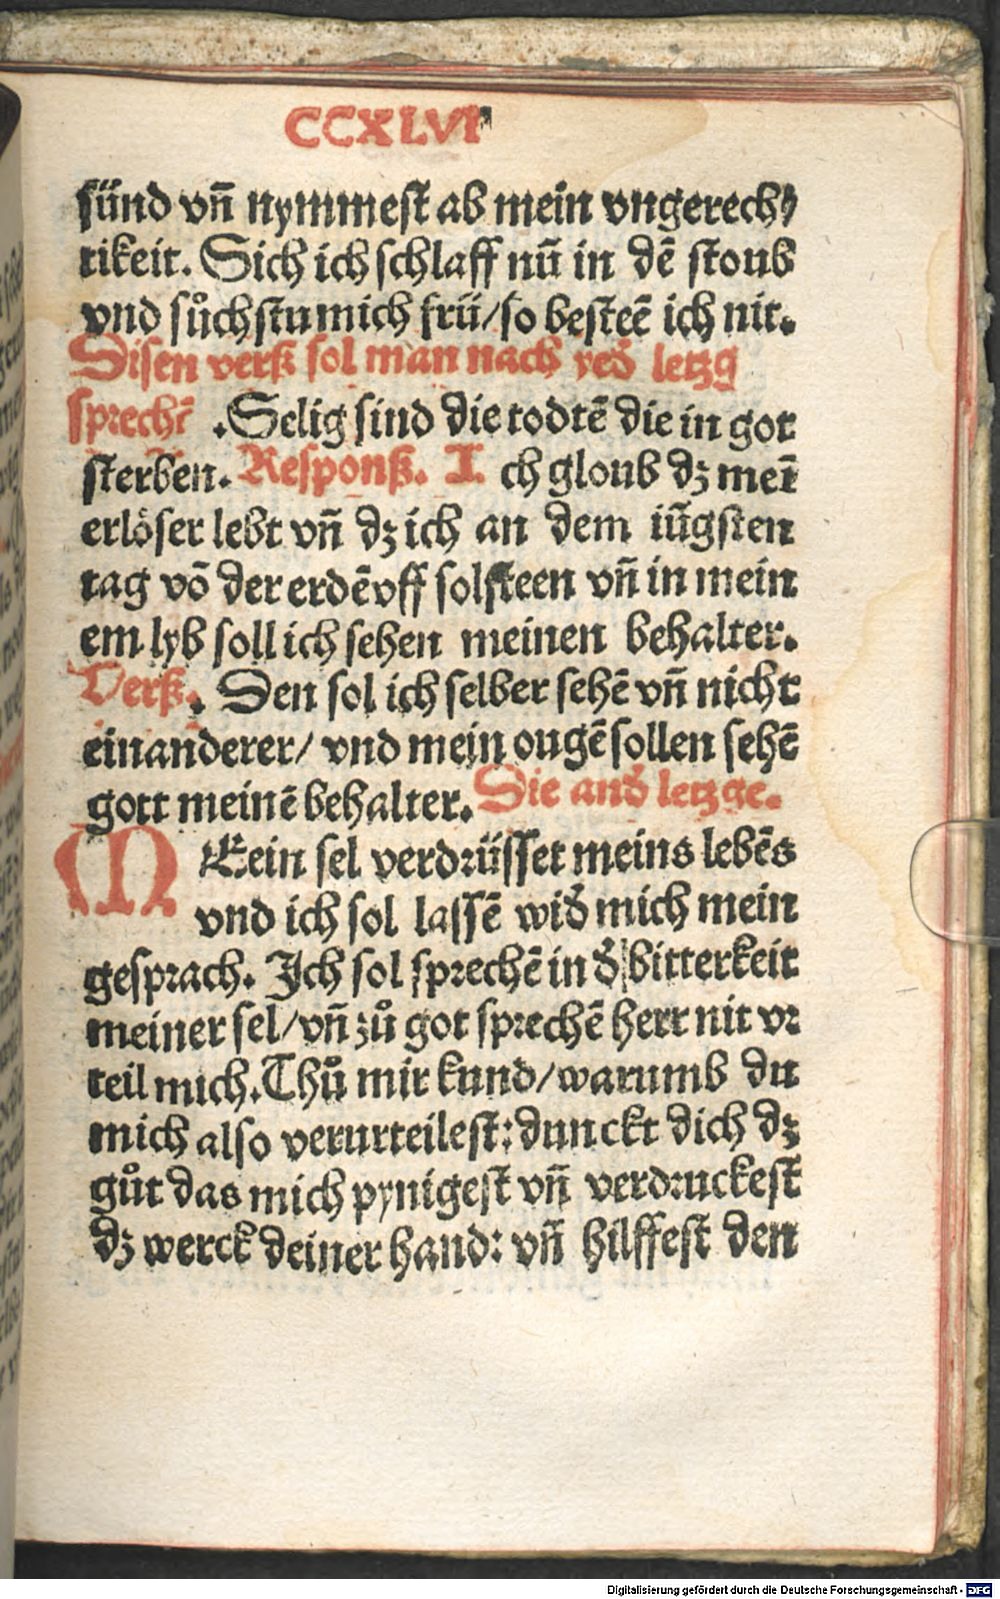 CCXLVI
sünd vn̄ nymmest ab mein vngerech⸗
tikeit. Sich ich schlaff nū in dē stoub
vnd sůchstu mich frü/so besteē ich nit.
Disen verß sol man nach yed̄ letzg
sprechē .Selig sind die todtē die in got
sterben. Responß. I ch gloub dz meī
erlöser lebt vn̄ dz ich an dem iūgsten
tag vō der erdē vff solsteen vn̄ in mein
em lyb soll ich sehen meinen behalter.
Verß. Den sol ich selber sehē vn̄ nicht
einanderer/ vnd mein ougē sollen sehē
gott meinē behalter. Die and̄ letzge.
MEin sel verdrüsset meins lebēs
vnd ich sol lassē wid̄ mich mein
gesprach. Ich sol sprechē in d̄ bitterkeit
meiner sel/vn̄ zů got sprechē herr nit vr
teil mich. Thů mir kund/warumb du
mich also verurteilest: dunckt dich dz
gůt das mich pynigest vn̄ verdruckest
dz werck deiner hand: vn̄ hilffest den
Digitalisierung gefördert durch die Deutsche Forschungsgemeinschaft - DFG